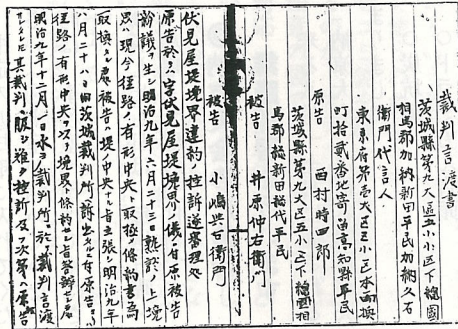 裁判言渡書
茨城縣第九大区五小区下總國
相馬郡加納新田平民加納久右
衛門代言人
東京府第壱大区三小区本両換
町拾貳番地寄留高知縣平民
原告 西村時四郎
茨城縣第九大区五小区下總國相
馬郡 新田 平民
被告 井原仲右衛門
被告 小嶋與右衛門
伏見屋堤境界違約ノ控訴遂審理処
原告於テハ字伏見屋堤境界ノ儀ニ付原被告
紛議ヲ生シ明治九年六月二十三日熟談ノ上境
界ハ現今径路ノ有形中央ト取極メ條約書為
取換タル處被告ハ堤ノ中央ナル旨主張シ明治九年
八月二十八日茨城裁判所ヘ訴出タルニ付原告ハ
径路ノ有形中央ヲ以テ境界ト條約セシ旨答辯シ
明治九年十二月 日水戸裁判所ニ於テ裁判言渡
其裁判ニ服シ難ク控訴及フ次第ハ原告